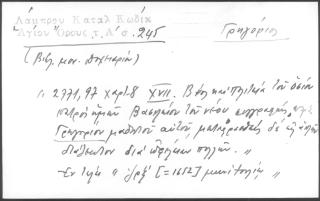 Λάμπρου Καταλ Κωδίκ
Ἁγίου Ὄρους τ. Α´ σ. 245
Γρηγόριος
(Βιβ. μον. )
1. 2771,97 χαρτ 8 XVII. Βίος καὶ πολιτεία τοῦ ὁσίου
πατρὸς ἡμῶν Βασιλείου τοῦ νέου συγγραφεὶς παρὰ
Γρηγορίου μαθητοῦ αὐτοῦ, μεταφρασθεὶς δὲ εἰς
διὰ ὠφέλειαν πολλῶν. „
— Ἐν τέλει „ ͵αχξ [= 1652] „